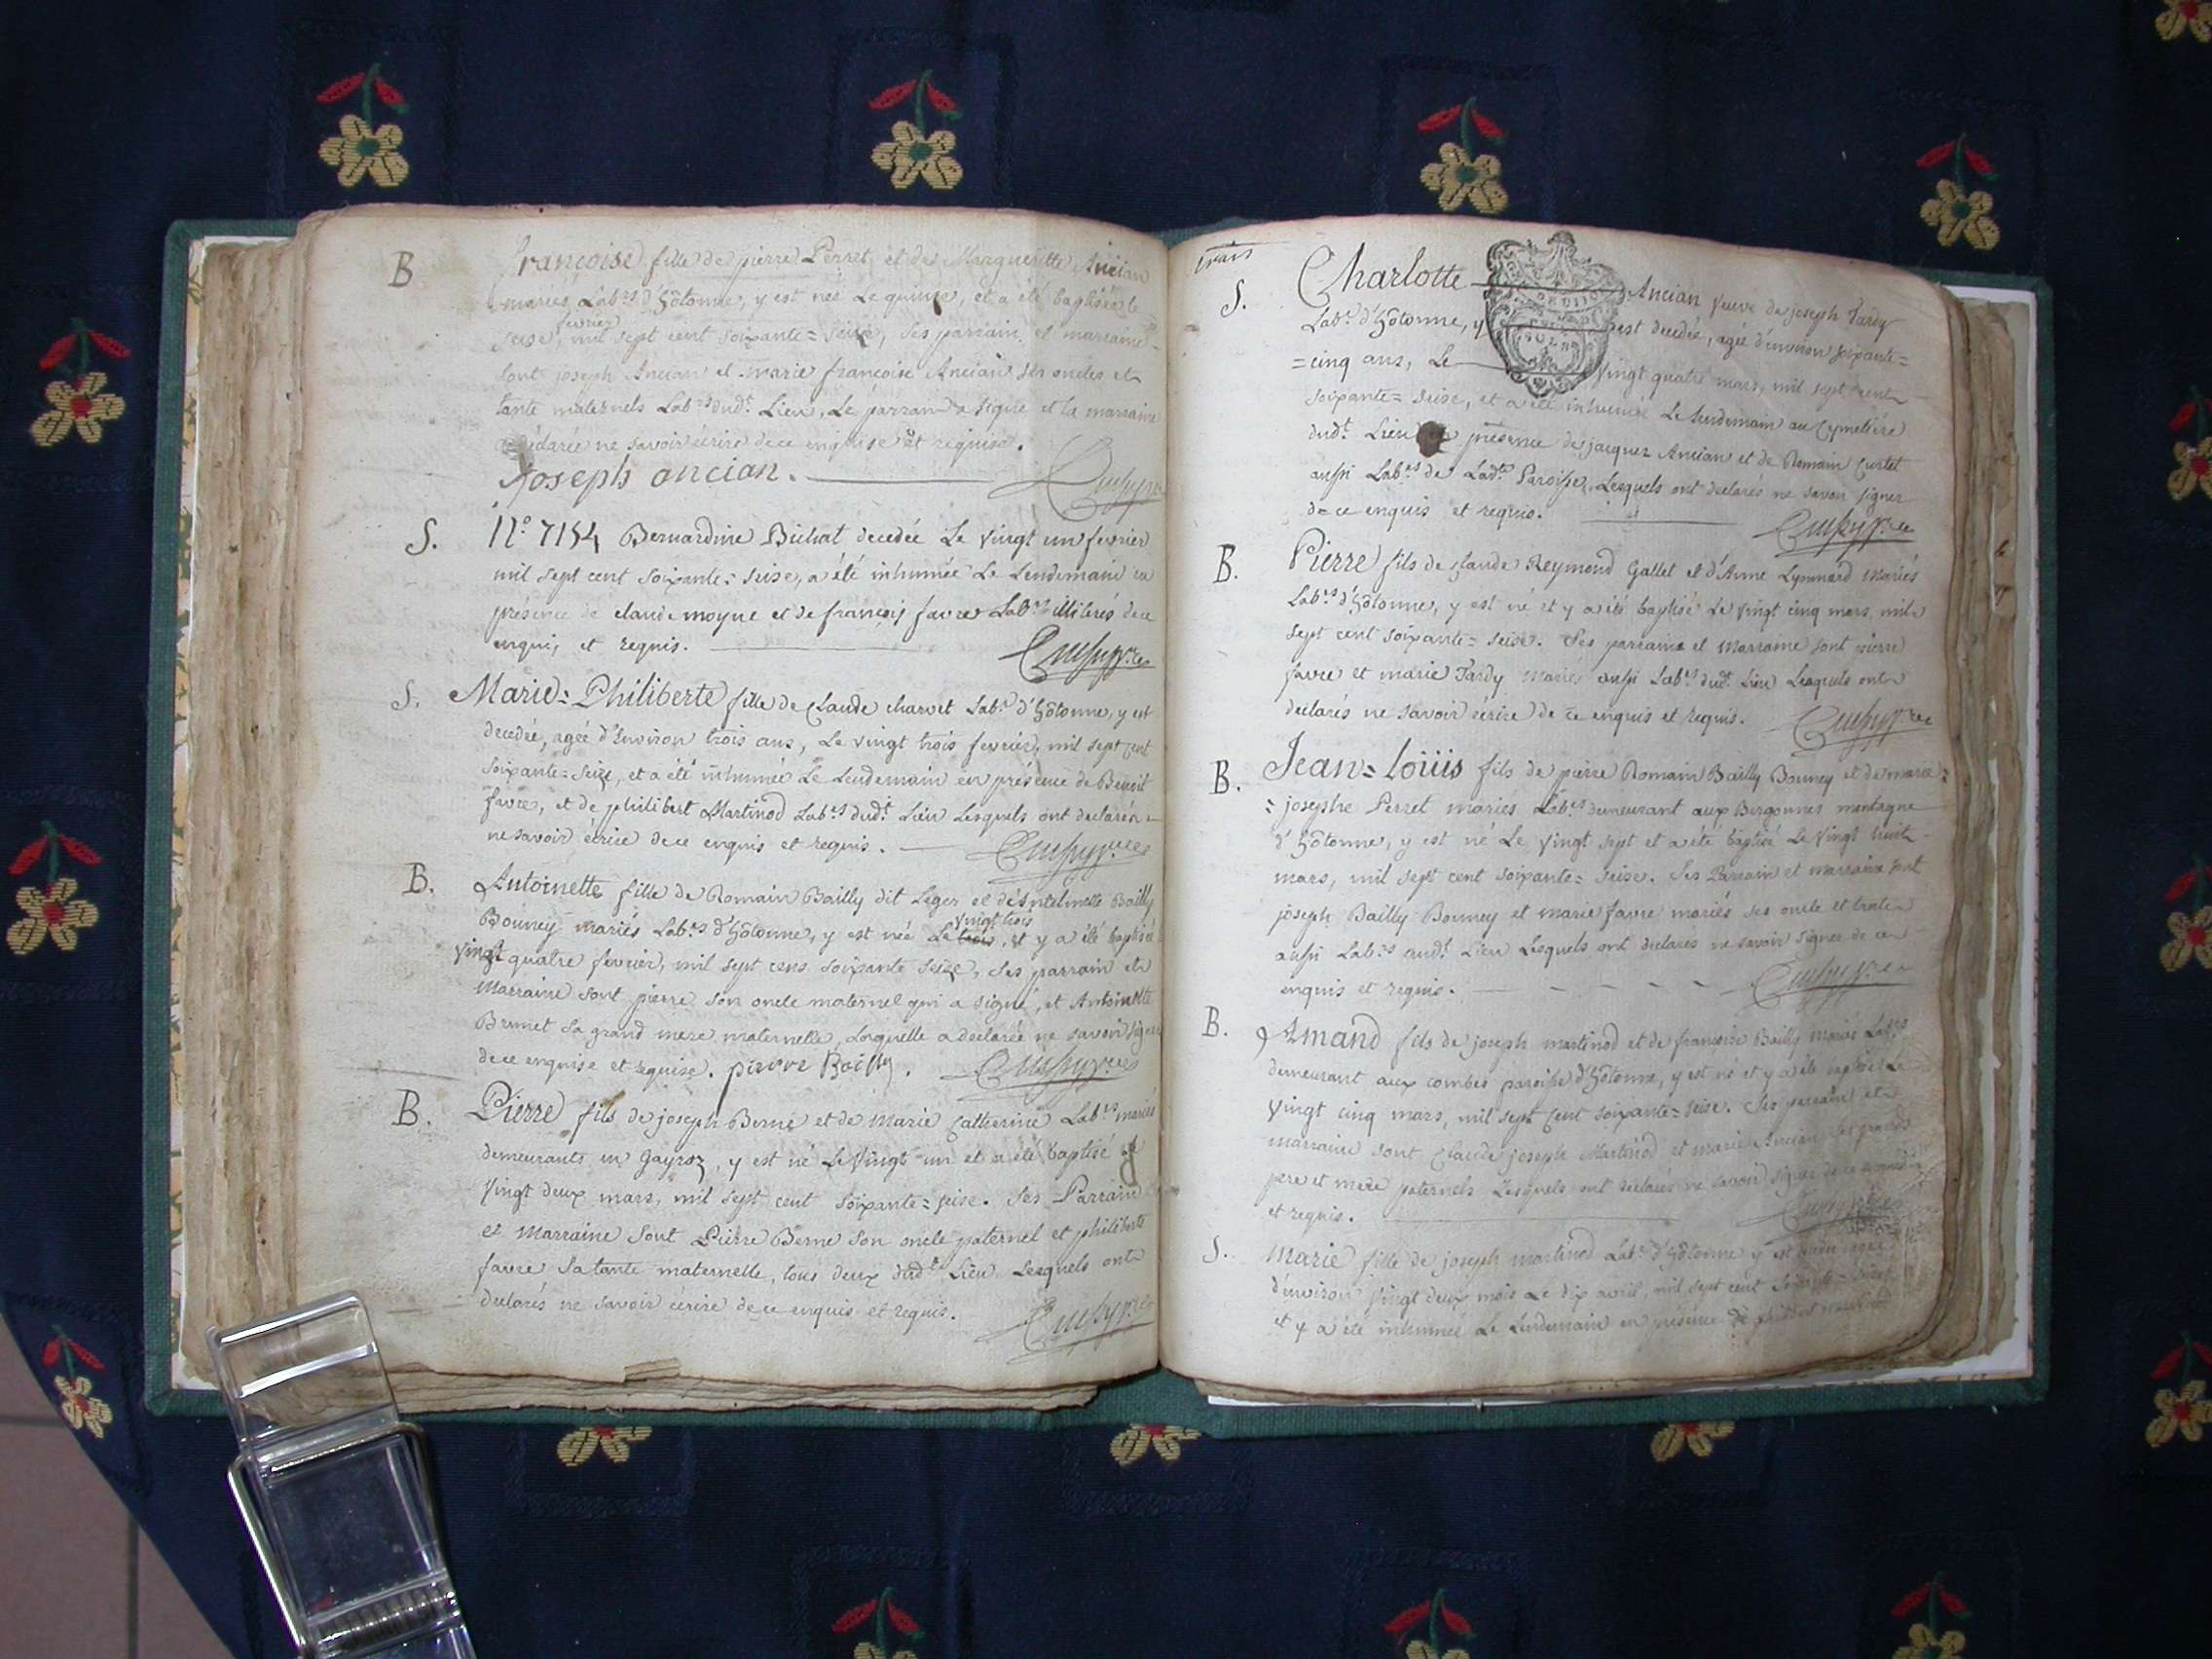 B
Françoise fille de pierre Perret et de Margueritte Ancian
mariés Lab.rs d'hôtonne, y est née Le quinze, et a été baptisée le
fevrier
seise, mil sept cent soixante=seise, ses parrain et marraine
sont joseph Ancian et marie françoise Ancian ses oncles et
tante maternels Lab.rs dud.t Lieu, Le parrain a signé et la marraine
a déclarée ne savoir écrire de ce enquise et requise.
joseph ancian.
S.
N.o 7154 Bernardine Bichat decedée Le vingt un fevrier
mil sept cent soixante=seise, a été inhumée Le Lendemain en
présence de claude moyne et de françois favre Lab.rs illiterés de ce
enquis et requis.
S.
Marie=Philiberte fille de Claude charvet Lab.r d'hôtonne, y est
decedée, agée d'Environ trois ans, Le vingt trois fevrier, mil sept cent
soixante=seize, et a été inhumée Le Lendemain en présence de Benoit
favre, et de philibert Martinod Lab.rs dud.t Lieu Lesquels ont declarés
ne savoir écrire de ce enquis et requis.
B.
Antoinette fille de Romain Bailly dit Leger et d'Antelmette Bailly
vingt trois
Bouney mariés Lab.rs d'hôtonne, y est née Le trois, et y a été baptisée
vingt quatre fevrier, mil sept cens soixante seize, ses parrain et
Marraine sont pierre son oncle maternel qui a signé, et Antoinette
Brunet sa grand mere maternelle, Laquelle a declarée ne savoir signer
de ce enquise et requise. pierre Bailly.
B.
Pierre fils de joseph Berne et de Marie Catherine Lab.rs mariés
demeurants en Gayroz, y est né Le Vingt un et a été baptisé le
Vingt deux mars, mil sept cent soixante=seise. Ses Parrain
et Marraine sont Pierre Berne son oncle paternel et philiberte
favre sa tante maternelle, tous deux dud.t Lieu Lesquels ont
declarés ne savoir écrire de ce enquis et requis.
S.
Charlotte Ancian veuve de joseph Tardy
Lab.r d'hôtonne, y est decedée, agée d'environ soixante=
=cinq ans, Le Vingt quatre mars, mil sept cent
soixante=seise, et a été inhumée Le Lendemain au Cymetière
dud.t Lieu en présence de jacques Ancian et de Romain Curtet
aussi Lab.rs de Lad.te Paroisse, Lesquels ont declarés ne savoir signer
de ce enquis et requis.
B.
Pierre fils de Claude Reymond Gallet et d'Anne Lyonnard Mariés
Lab.rs d'hôtonne, y est né et y a été baptisé Le vingt cinq mars mil
sept cent soixante=seise. Ses parrains et Marraine sont pierre
favre et marie Tardy mariés aussi Lab.rs dud.t Lieu Lesquels ont
declarés ne savoir écrire de ce enquis et requis.
B.
Jean=Loüis fils de pierre Romain Bailly Bouney et de marie=
=josephe Perret mariés Lab.rs demeurant aux Bergonnes montagne
d'hôtonne, y est né Le Vingt sept et a été baptisé Le Vingt huit
mars, mil sept cent soixante=seise. Ses Parrain et marraine sont
joseph Bailly Bouney et marie favre mariés ses oncle et tante
aussi Lab.rs aud.t Lieu Lesquels ont declarés ne savoir signer de ce
enquis et requis.
B.
Amand fils de joseph martinod et de françoise Bailly mariés Lab.rs
demeurant aux combes paroisse d'hôtonne, y est né et y a été baptisé Le
vingt cinq mars, mil sept cent soixante=seise. Ses parrain et
marraine sont Claude joseph Martinod et marie Ancian ses grands
pere et mere paternels Lesquels ont declarés ne savoir signer de ce enquis
et requis.
S.
Marie fille de joseph martinod Lab.r d'hôtonne y est agée
d'environ vingt deux mois Le dix avril, mil sept cent soixante=seise
et y a été inhumée Le Lendemain en présence de philibert martinod